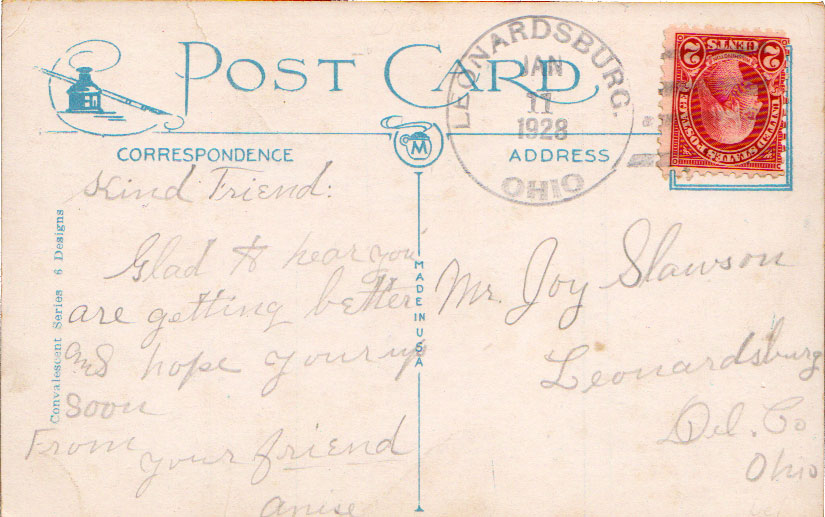 POST CARD
LEONARDSBURG.
JAN
11
1928
OHIO
2 CENTS 2
UNITED STATES POSTAGE
CORRESPONDENCE
M
ADDRESS
Kind Friend:
Glad to hear you
are getting better
and hope your up
soon
From
your friend
Anise
Convalescent Series 6 Designs
MADE IN USA
Mr. Joy Slawson
Leonardsburg
Del. Co
Ohio